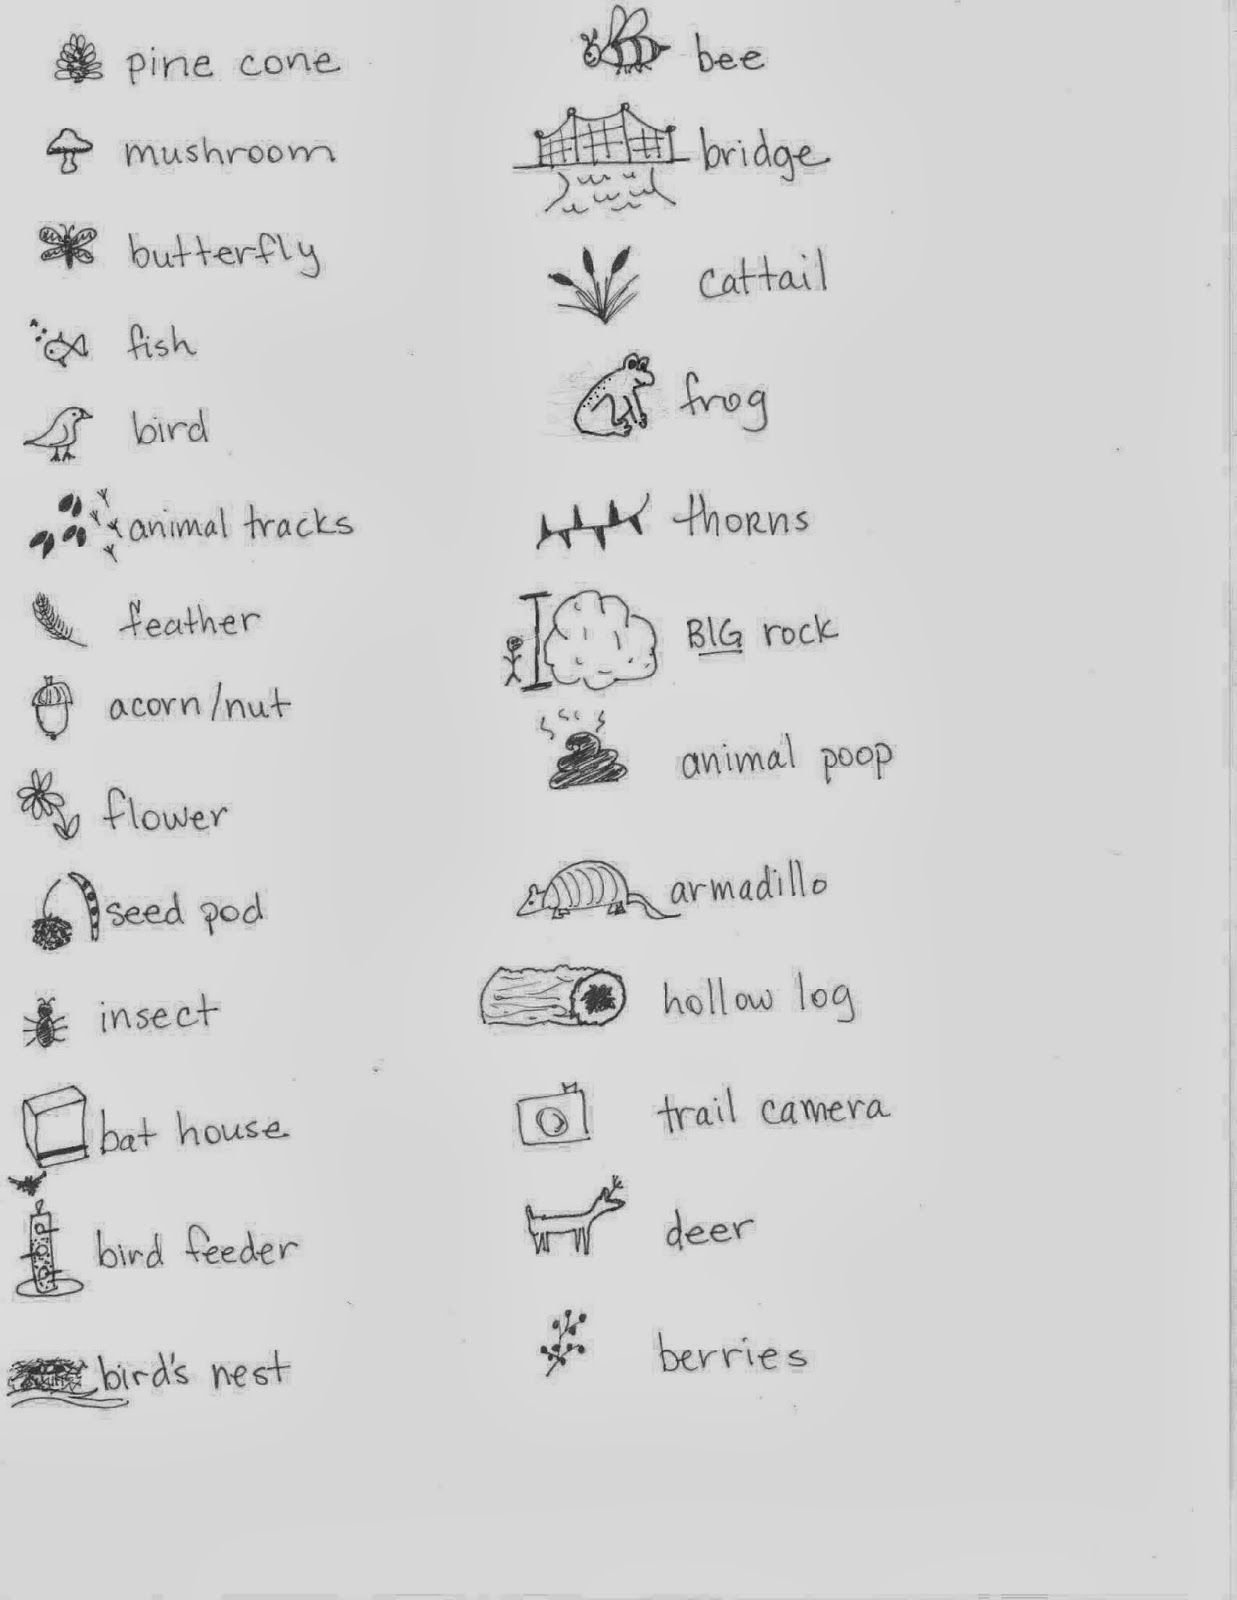 pine cone
mushroom
butterfly
fish
bird
animal tracks
feather
acorn/nut
flower
seed pod
insect
bat house
bird feeder
bird's nest
bee
bridge
cattail
frog
thorns
BIG rock
animal poop
armadillo
hollow log
trail camera
deer
berries